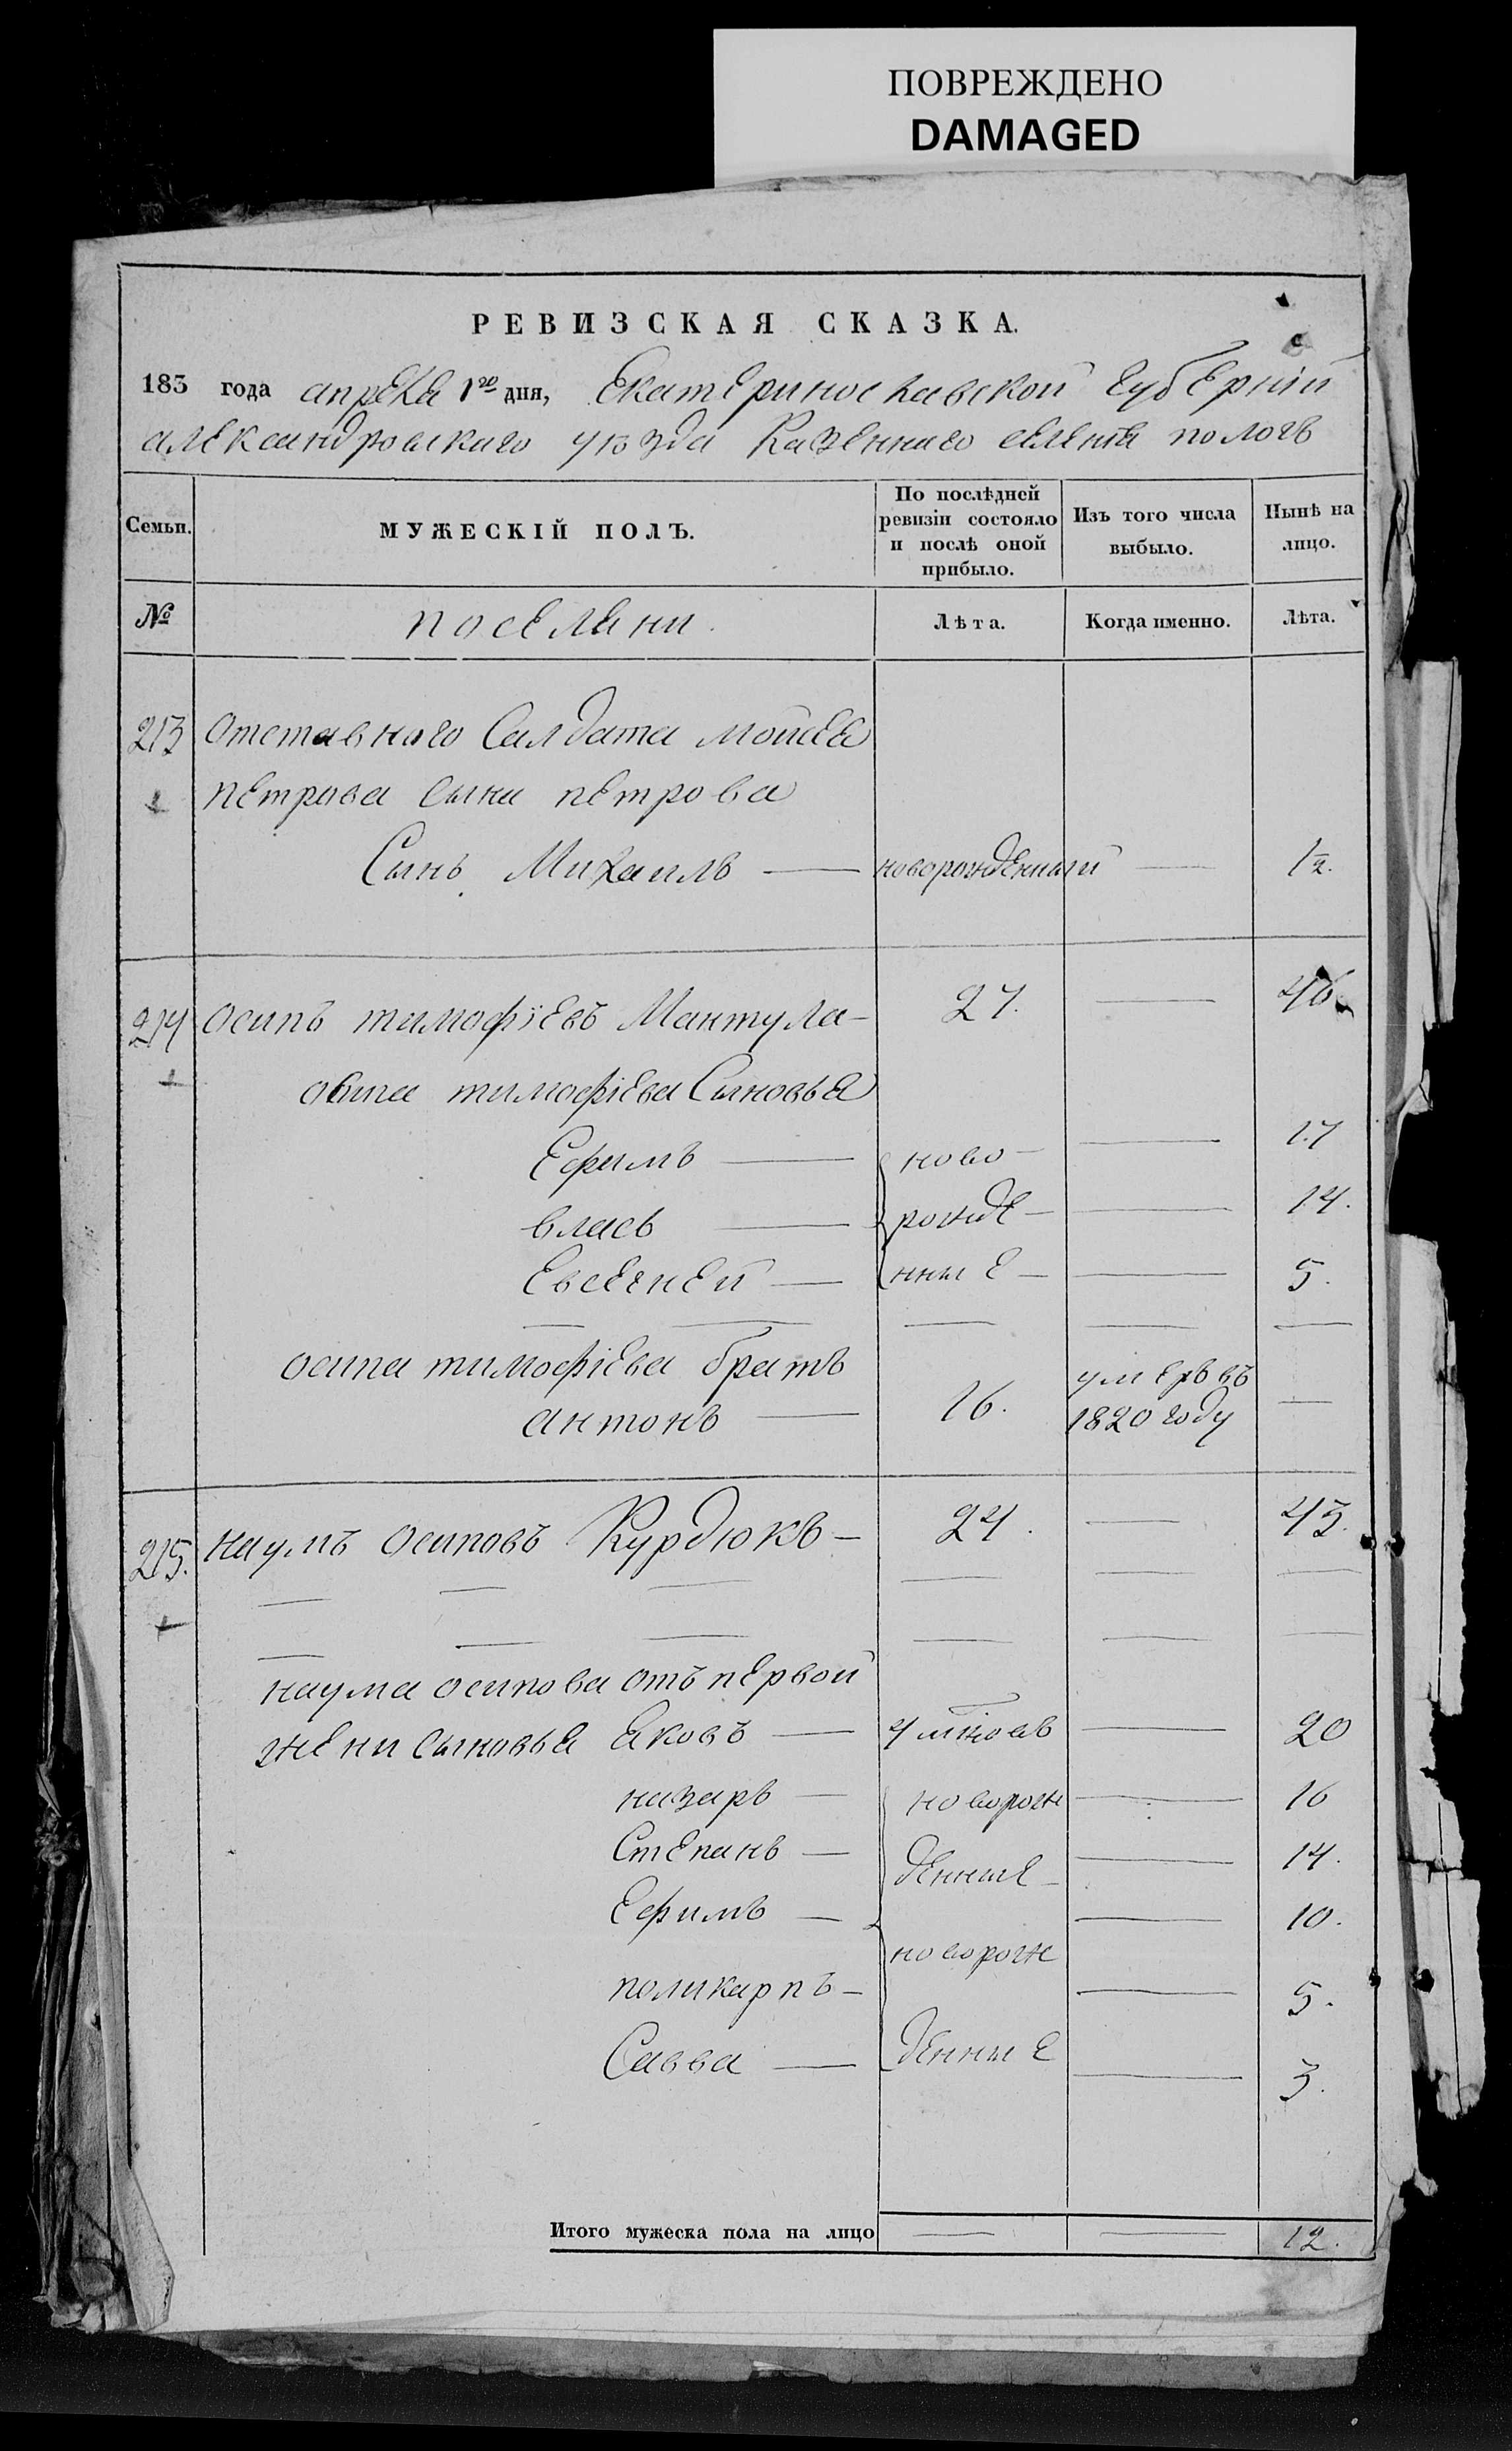 ПОВРЕЖДЕНО
DAMAGED
РЕВИЗСКАЯ СКАЗКА.
183 года апреля 1го дня, Екатеринославской губернiи
александровскаго уѣзда Казеннаго селенiя пологъ
Семьи. МУЖЕСКІЙ ПОЛЪ. По послѣдней ревизіи состояло и послѣ оной прибыло. Изъ того числа выбыло. Нынѣ на лицо.
№ поселяни. Лѣта. Когда именно. Лѣта.
213 отставного Салдата мойсея
петрова сына петрова
Сынъ Михаилъ — новорожденный — 1/2.
214 осипъ тимофіевъ Мантула — 27. — 46.
осипа тимофіева Сыновья
Ефимъ — ново — — 17
власъ — рожде — — 14.
Евсегней — нные — — 5.
осипа тимофіева братъ
антонъ — 16. умеръ въ 1820 году —
215. наумъ осиповъ Курдюкъ — 24. — 43.
наума осипова отъ первой
жени сыновья яковъ — — 20
назаръ — новорож — 16
Степанъ — денные — — 14.
Ефимъ — — 10.
новорож
поликарпъ — — 5.
Савва — денные — 3.
Итого мужеска пола на лицо — — 12.